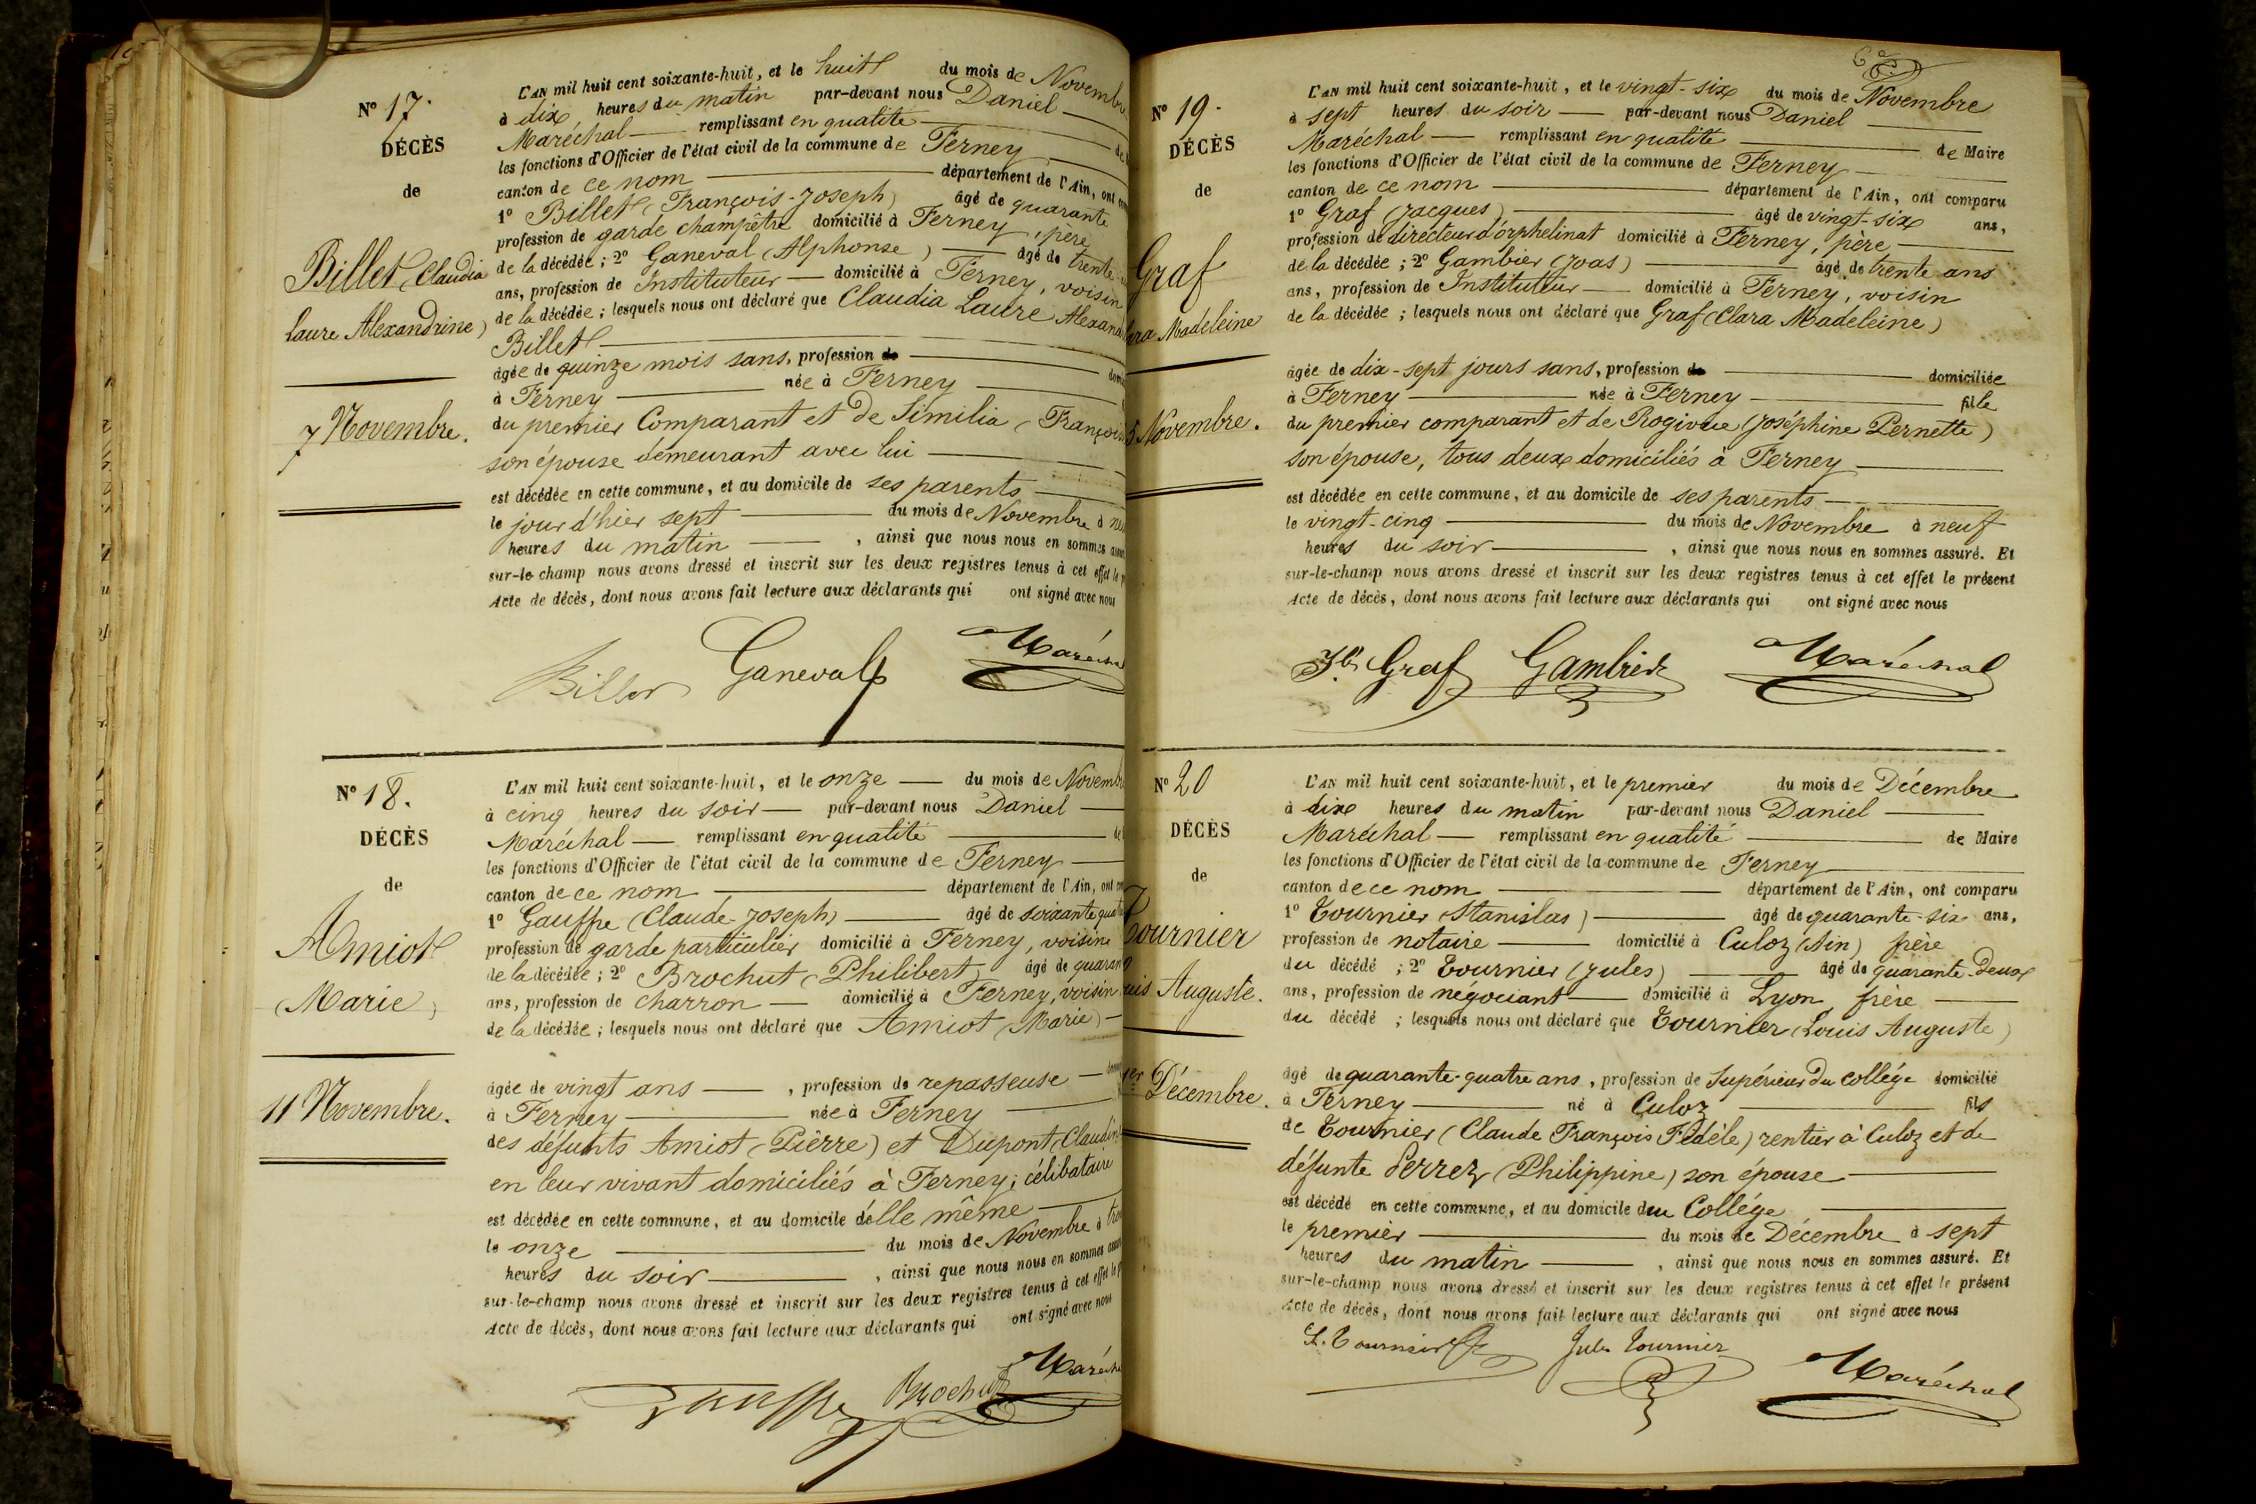 N° 17.
DÉCÈS
de
Billet (Claudia
Laure Alexandrine)
7 Novembre.
L'AN mil huit cent soixante-huit, et le huit du mois de Novembre
à dix heures du matin par-devant nous Daniel
Maréchal remplissant en qualité
les fonctions d'Officier de l'état civil de la commune de Ferney
canton de ce nom département de l'Ain, ont
1° Billet (François-Joseph) âgé de quarante
profession de garde champêtre domicilié à Ferney, père
de la décédée ; 2° Ganeval (Alphonse) âgé de trente
ans, profession de Instituteur domicilié à Ferney, voisin
de la décédée ; lesquels nous ont déclaré que Claudia Laure
Billet
âgée de quinze mois sans, profession de
à Ferney née à Ferney
du premier Comparant et de Similia
son épouse démeurant avec lui
est décédée en cette commune, et au domicile de ses parents
le jour d'hier sept du mois de Novembre à
heures du matin, ainsi que nous nous en sommes
sur-le-champ nous avons dressé et inscrit sur les deux registres tenus à cet effet le
Acte de décès, dont nous avons fait lecture aux déclarants qui ont signé avec nous
Billet Ganeval Maréchal
N° 18.
DÉCÈS
de
Amiot
(Marie)
11 Novembre.
L'AN mil huit cent soixante-huit, et le onze du mois de Novembre
à cinq heures du soir par-devant nous Daniel
Maréchal remplissant en qualité
les fonctions d'Officier de l'état civil de la commune de Ferney
canton de ce nom département de l'Ain, ont
1° Gauffre (Claude-Joseph) âgé de soixante
profession de garde particulier domicilié à Ferney, voisin
de la décédée ; 2° Brochut (Philibert) âgé de
ans, profession de charron domicilié à Ferney, voisin
de la décédée ; lesquels nous ont déclaré que Amiot (Marie)
âgée de vingt ans, profession de repasseuse
à Ferney née à Ferney
des défunts Amiot (Pierre) et Dupont
en leur vivant domiciliés à Ferney ; célibataire
est décédée en cette commune, et au domicile d'elle même
le onze du mois de Novembre à
heures du soir, ainsi que nous nous en sommes
sur-le-champ nous avons dressé et inscrit sur les deux registres tenus à cet effet le
Acte de décès, dont nous avons fait lecture aux déclarants qui ont signé avec nous
Gauffre Brochut Maréchal
N° 19.
DÉCÈS
de
Graf
Madeleine
Novembre.
L'AN mil huit cent soixante-huit, et le vingt-six du mois de Novembre
à sept heures du soir par-devant nous Daniel
Maréchal remplissant en qualité de Maire
les fonctions d'Officier de l'état civil de la commune de Ferney
canton de ce nom département de l'Ain, ont comparu
1° Graf (Jacques) âgé de vingt-six ans,
profession de directeur d'orphelinat domicilié à Ferney, père
de la décédée ; 2° Gambier (Joas) âgé de trente ans
ans, profession de Instituteur domicilié à Ferney, voisin
de la décédée ; lesquels nous ont déclaré que Graf (Clara Madeleine)
âgée de dix-sept jours sans, profession de domiciliée
à Ferney née à Ferney fille
du premier comparant et de Rogivue (Joséphine Pernette)
son épouse, tous deux domiciliés à Ferney
est décédée en cette commune, et au domicile de ses parents
le vingt-cinq du mois de Novembre à neuf
heures du soir, ainsi que nous nous en sommes assuré. Et
sur-le-champ nous avons dressé et inscrit sur les deux registres tenus à cet effet le présent
Acte de décès, dont nous avons fait lecture aux déclarants qui ont signé avec nous
Graf Gambier Maréchal
N° 20
DÉCÈS
de
Tournier
Auguste.
1er Décembre.
L'AN mil huit cent soixante-huit, et le premier du mois de Décembre
à dix heures du matin par-devant nous Daniel
Maréchal remplissant en qualité de Maire
les fonctions d'Officier de l'état civil de la commune de Ferney
canton de ce nom département de l'Ain, ont comparu
1° Tournier (Stanislas) âgé de quarante-six ans,
profession de notaire domicilié à Culoz (Ain) frère
du décédé ; 2° Tournier (Jules) âgé de quarante-deux
ans, profession de négociant domicilié à Lyon, frère
du décédé ; lesquels nous ont déclaré que Tournier (Louis Auguste)
âgé de quarante-quatre ans, profession de Supérieur du Collége domicilié
à Ferney né à Culoz fils
de Tournier (Claude François Fidèle) rentier à Culoz et de
défunte Perrez (Philippine) son épouse
est décédé en cette commune, et au domicile du Collége
le premier du mois de Décembre à sept
heures du matin, ainsi que nous nous en sommes assuré. Et
sur-le-champ nous avons dressé et inscrit sur les deux registres tenus à cet effet le présent
Acte de décès, dont nous avons fait lecture aux déclarants qui ont signé avec nous
S. Tournier Jules Tournier Maréchal